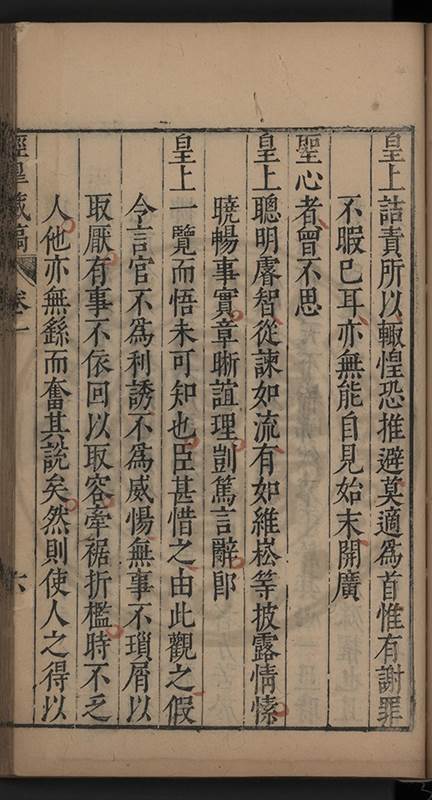 皇上詰責所以輙惶恐推避莫適爲首惟有謝罪
不暇已耳亦無能自見始末開廣
聖心者曾不思
皇上聰明睿智從諫如流有如維崧等披露情愫
曉暢事實章晰誼理剴篤言辭卽
皇上一覽而悟未可知也臣甚惜之由此觀之假
令言官不爲利誘不爲威惕無事不瑣屑以
取厭有事不依回以取容牽裾折檻時不乏
人他亦無繇而奮其說矣然則使人之得以
經皐藏稿
卷一
六